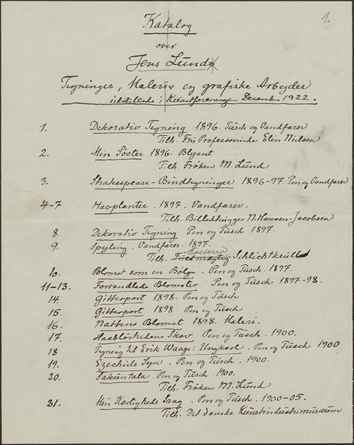 1.
Katalog
over
Jens Lunds
Tegninger, Malerier og grafiske Arbejder
udstillede i Kunstforening December 1922.
1. Dekorativ Tegning 1896. Tusch og Vandfarve
Tilh. Fru Professorinde Elin Nielsen
2. Min Søster 1896. Blyant
Tilh. Frøken M. Lund
3. Shakespeare-Bindtegninger 1896-97 Pen og Vandfarve
4-7 Havplanter. 1897. Vandfarve.
Tilh. Billedhugger N. Hansen-Jacobsen
8. Dekorativ Tegning Pen og Tusch 1897
9. Spejling. Vandfarve. 1897.
Tilh. Schlichtkrull
10. Blomst som en Bølge. Pen og Tusch. 1897
11-13. Forvandlede Blomster. Pen og Tusch. 1897-98.
14. Gitterport 1898. Pen og Tusch.
15. Gitterport 1898 Pen og Tusch
16. Nattens Blomst 1898. Maleri.
17. Pen og Tusch. 1900.
18. Tegning til Erik Pen og Tusch. 1900
19. Ezechiels Syn. Pen og Tusch. 1900.
20. Sakuntala Pen og Tusch. 1900.
Tilh. Frøken M. Lund
21. Pen og Tusch. 1900-05.
Tilh. Det danske Kunstindustrimuseum